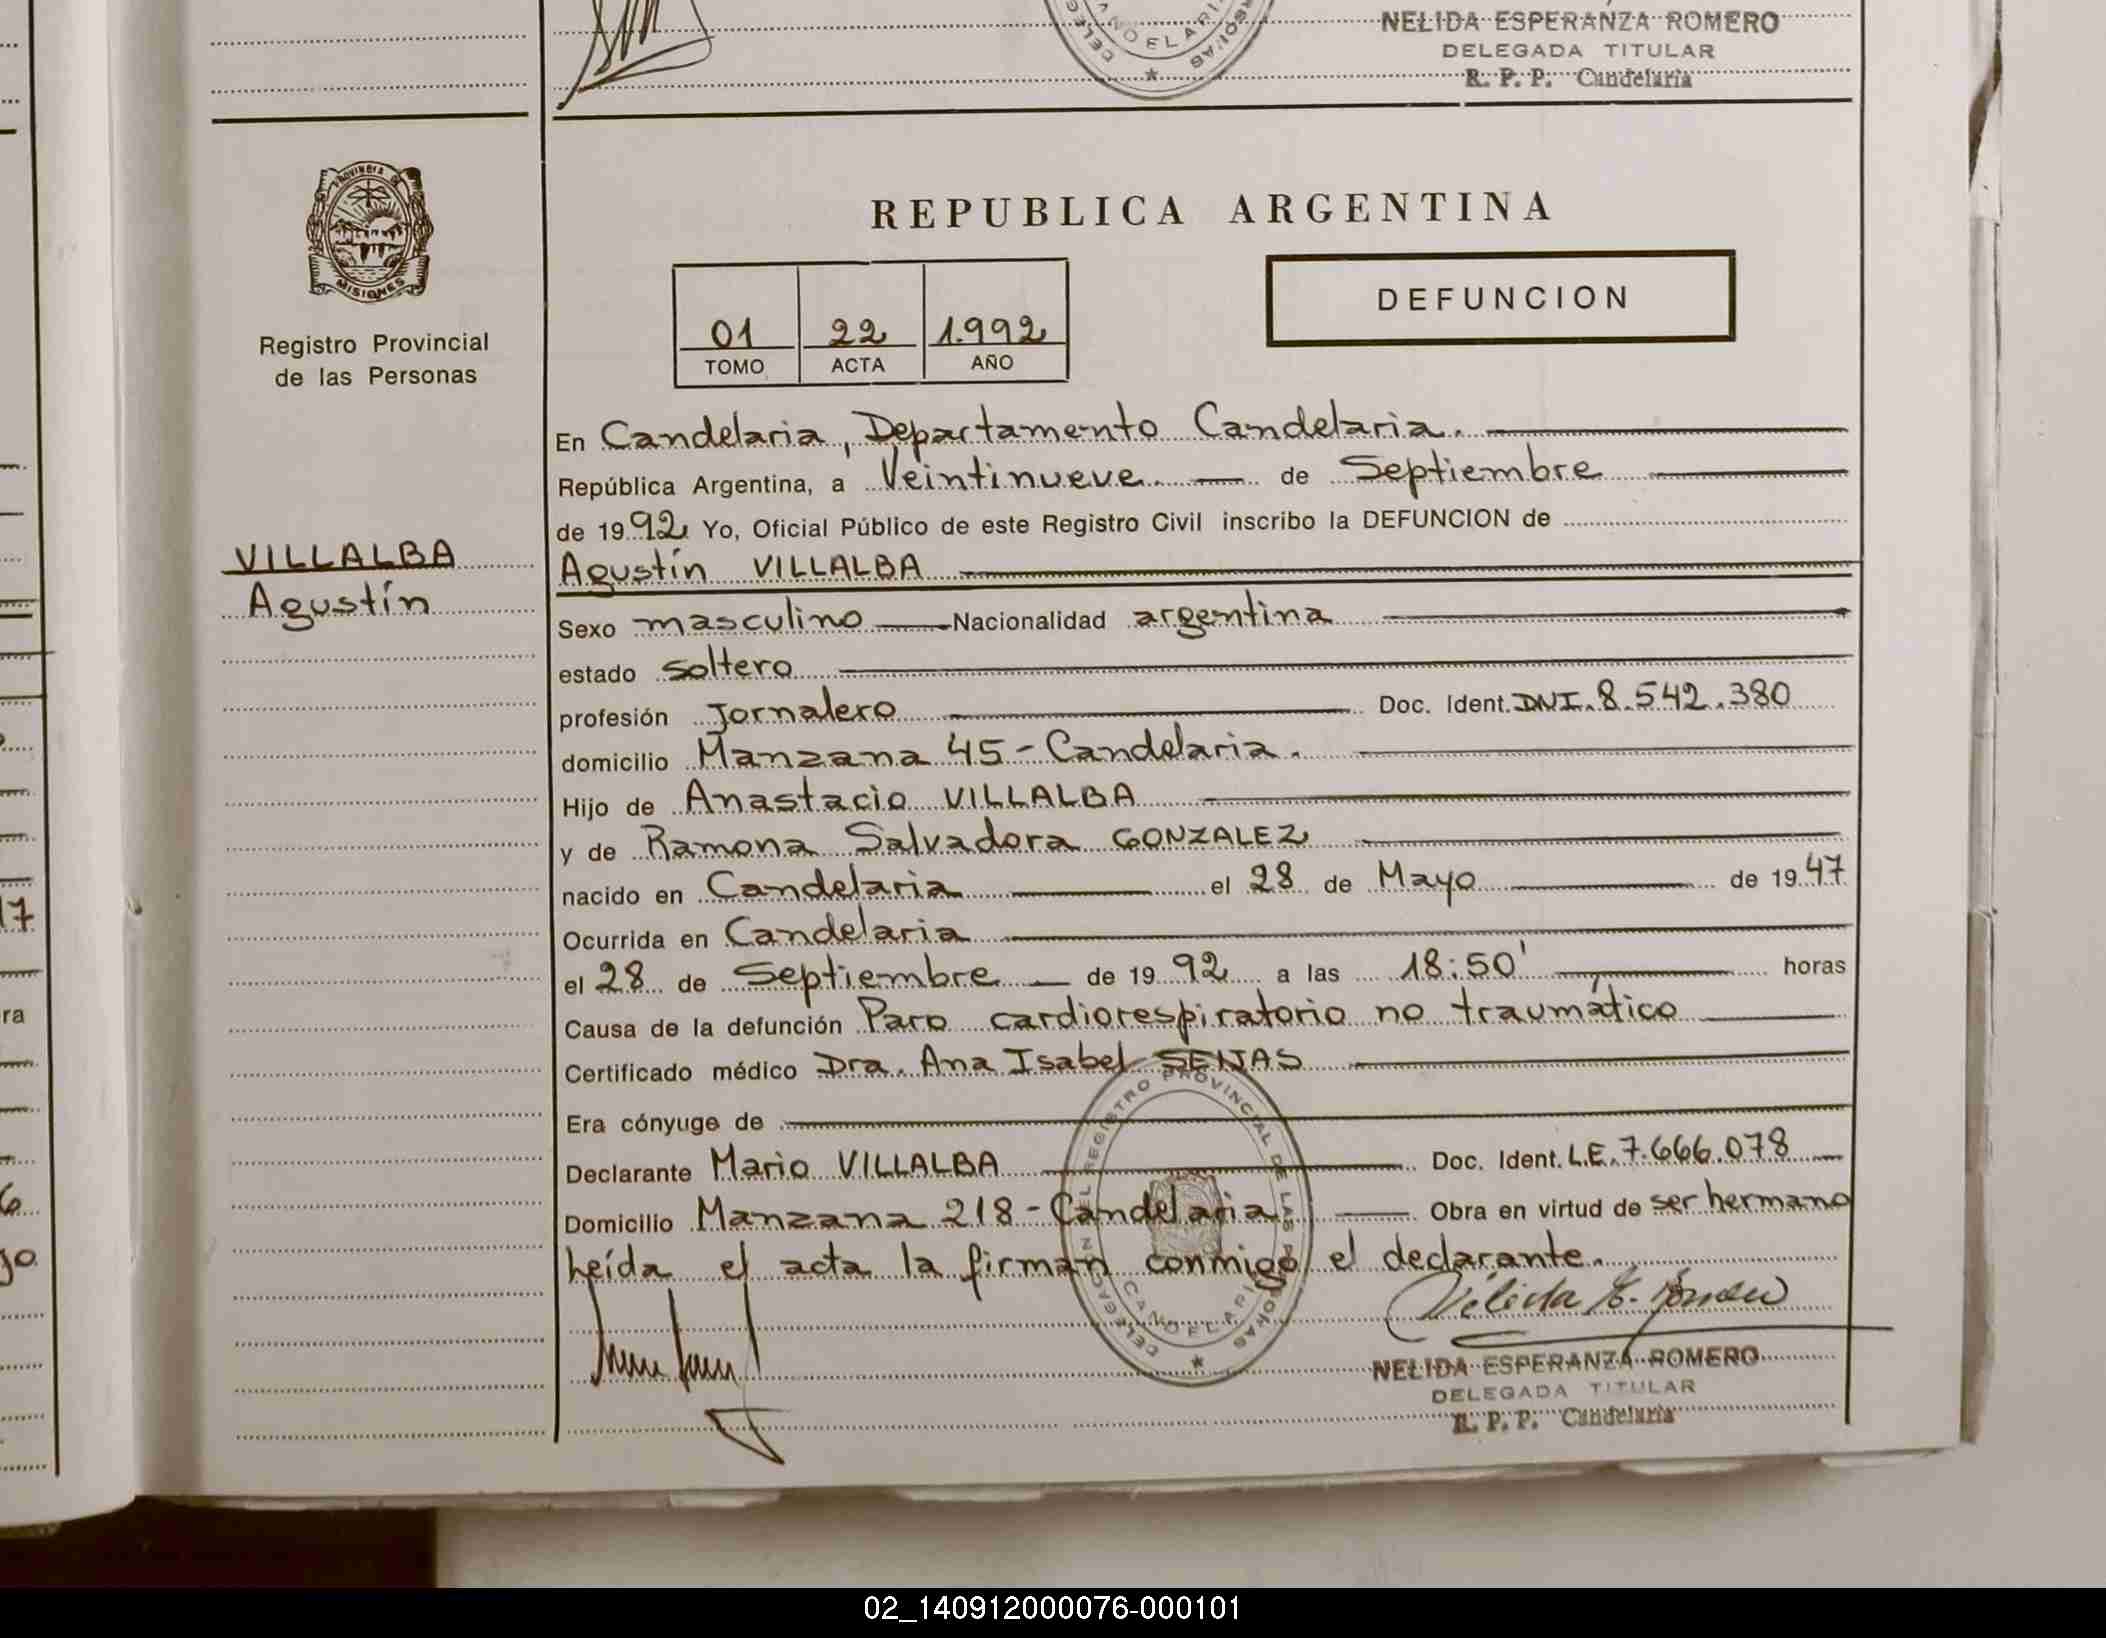 NELIDA ESPERANZA ROMERO
DELEGADA TITULAR
R. P. P. Candelaria
CANDELARIA
PROVINCIA DE
MISIONES
Registro Provincial
de las Personas
VILLALBA
Agustín
REPUBLICA ARGENTINA
01 22 1.992
TOMO ACTA AÑO
DEFUNCION
En Candelaria, Departamento Candelaria.
República Argentina, a Veintinueve. de Septiembre
de 1992 Yo, Oficial Público de este Registro Civil inscribo la DEFUNCION de
Agustín VILLALBA
Sexo masculino Nacionalidad argentina
estado soltero
profesión Jornalero Doc. Ident. DNI. 8.542.380
domicilio Manzana 45 - Candelaria.
Hijo de Anastacio VILLALBA
y de Ramona Salvadora GONZALEZ
nacido en Candelaria el 28 de Mayo de 1947
Ocurrida en Candelaria
el 28 de Septiembre de 1992 a las 18:50' horas
Causa de la defunción Paro cardiorespiratorio no traumático
Certificado médico Dra. Ana Isabel SENAS
Era cónyuge de
Declarante Mario VILLALBA Doc. Ident. L.E. 7.666.078
Domicilio Manzana 218 - Candelaria Obra en virtud de ser hermano
Leída el acta la firman conmigo el declarante.
DELEGACION EL REGISTRO PROVINCIAL DE LAS PERSONAS
CANDELARIA
Nélida E. Romero
NELIDA ESPERANZA ROMERO
DELEGADA TITULAR
R. P. P. Candelaria
17
ra
6
jo
02_140912000076-000101